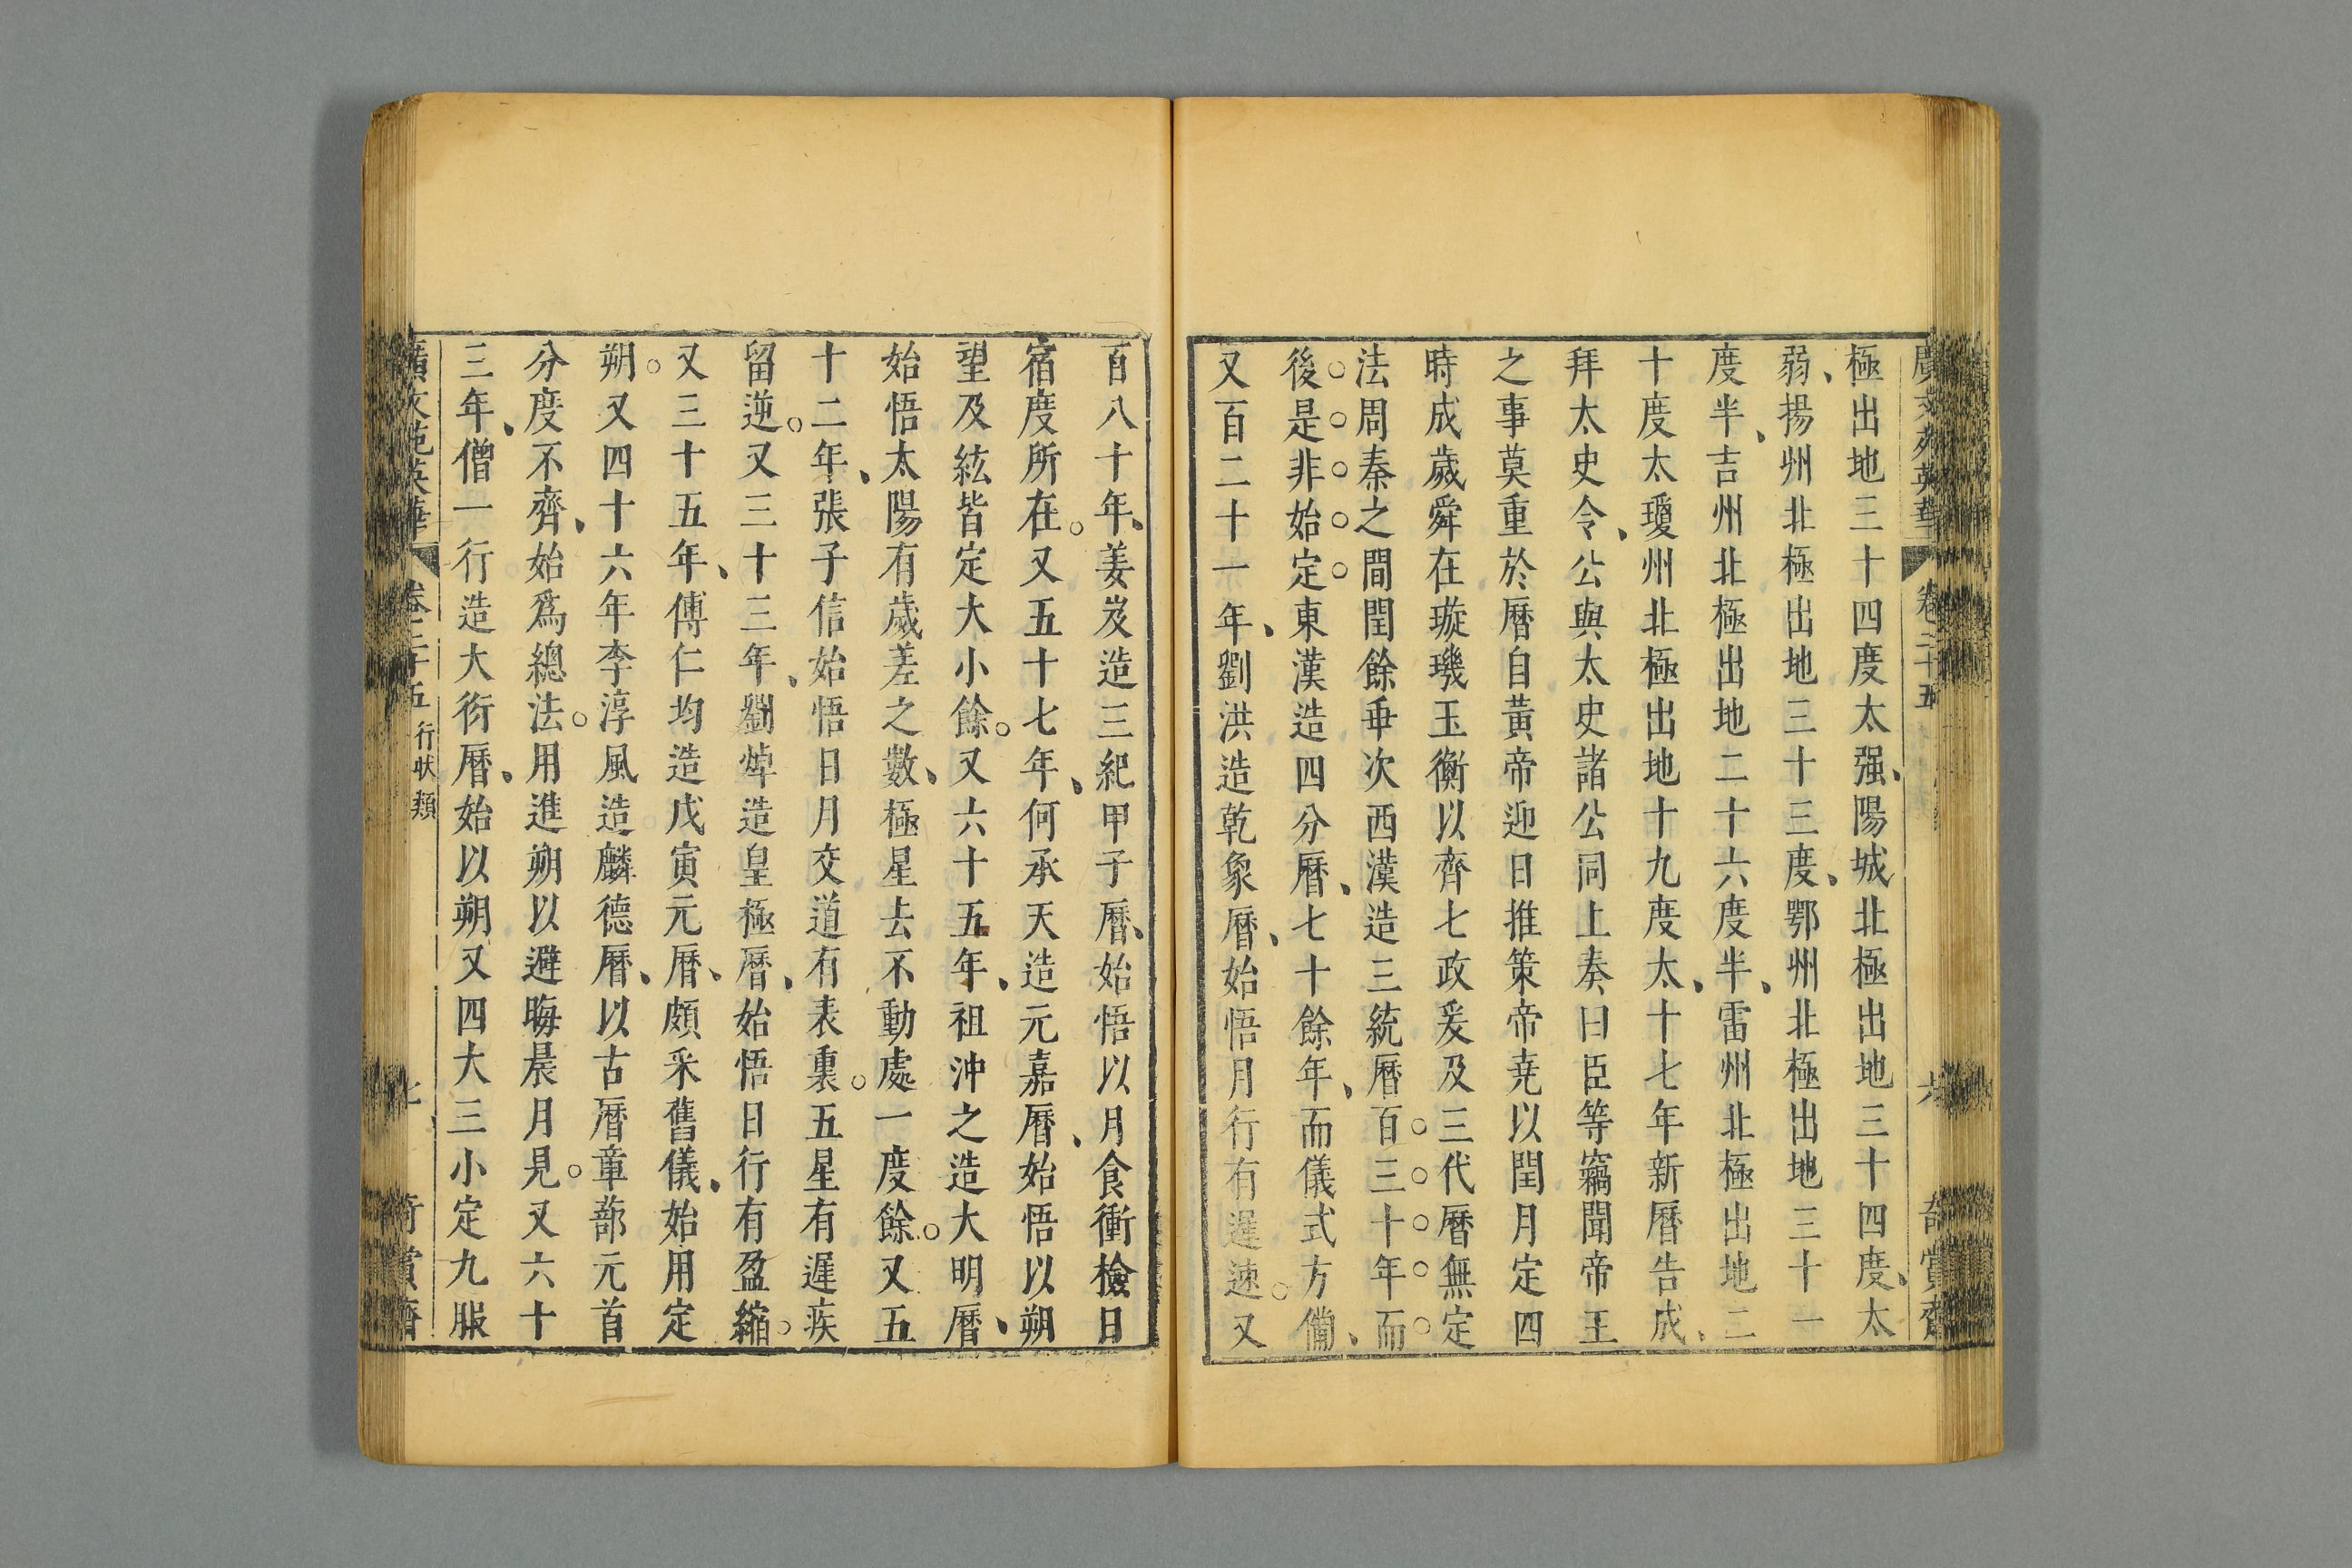 廣文苑英華 卷二十五 六 奇賞齋
極出地三十四度太强、陽城北極出地三十四度、太
弱、揚州北極出地三十三度、鄂州北極出地三十一
度半、吉州北極出地二十六度半、雷州北極出地二
十度太瓊州北極出地十九度太、十七年新曆告成、
拜太史令、公與太史諸公同上奏曰臣等竊聞帝王
之事莫重於曆自黃帝迎日推策帝堯以閏月定四
時成歲舜在璇璣玉衡以齊七政爰及三代曆無定
法周秦之間閏餘乖次西漢造三統曆百三十年而
後是非始定東漢造四分曆、七十餘年、而儀式方備、
又百二十一年、劉洪造乾象曆、始悟月行有遲速。又
百八十年、姜岌造三紀甲子曆、始悟以月食衝檢日
宿度所在。又五十七年、何承天造元嘉曆、始悟以朔
望及絃皆定大小餘。又六十五年、祖沖之造大明曆、
始悟太陽有歲差之數、極星去不動處一度餘。又五
十二年、張子信始悟日月交道有表裏。五星有遲疾
留逆。又三十三年、劉焯造皇極曆、始悟日行有盈縮。
又三十五年、傅仁均造戊寅元曆、頗采舊儀、始用定
朔。又四十六年李淳風造麟德曆、以古曆章蔀元首
分度不齊、始爲總法。用進朔以避晦晨月見。又六十
三年、僧一行造大衍曆、始以朔又四大三小定九服
廣文苑英華 卷二十五 行狀類 七 奇賞齋